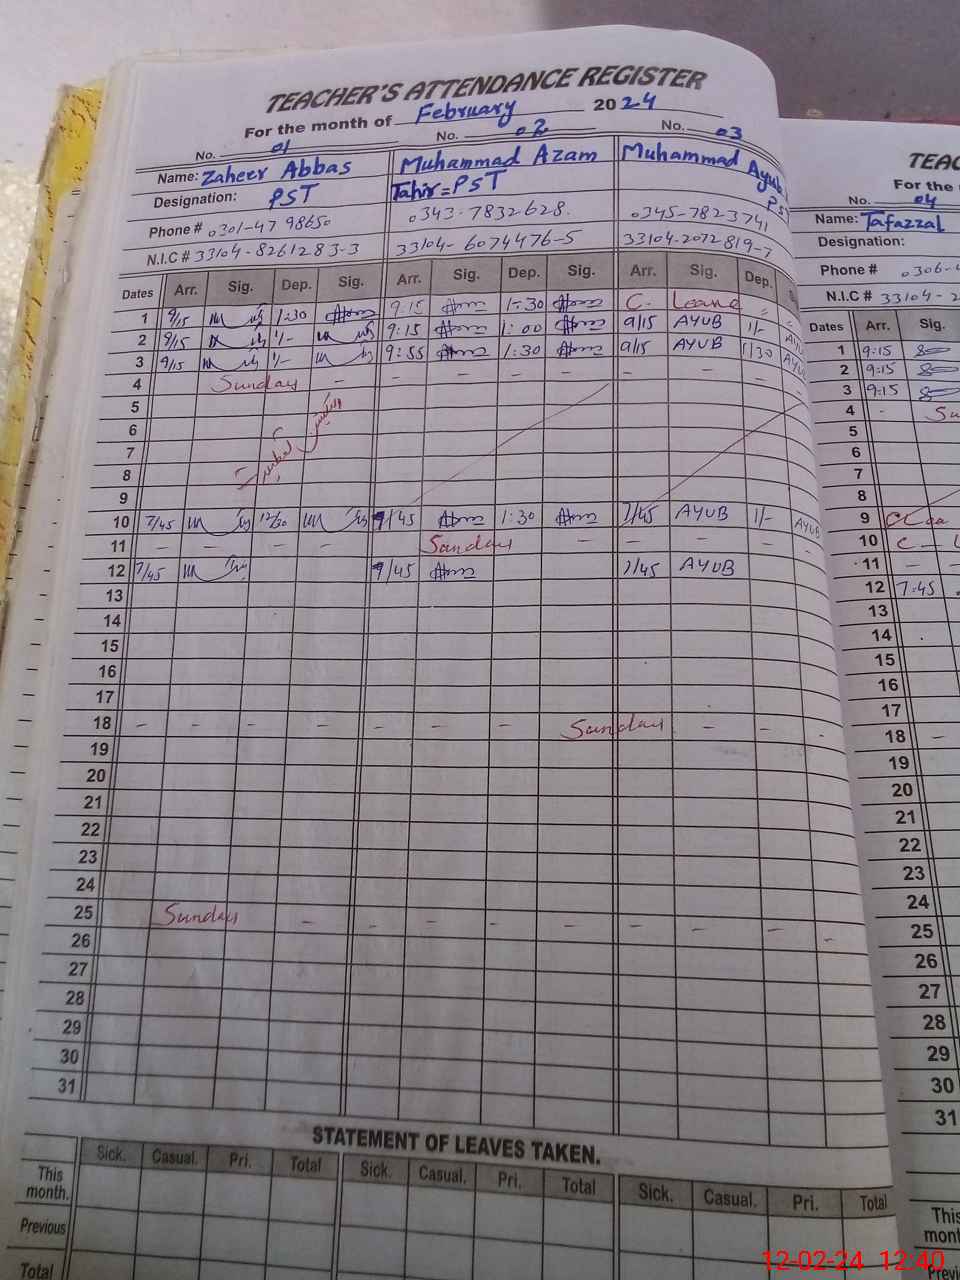 TEACHER'S ATTENDANCE REGISTER
For the month of February 2024
No. 01 No. 02 No. 03
Name: Zaheer Abbas Muhammad Azam Muhammad Ayub
Designation: PST Tahir = PST PST
Phone # 0301-47 98650 0343-7832628. 0345-7823741
N.I.C # 33104-8261283-3 33104-6074476-5 33104-2072819-7
Dates Arr. Sig. Dep. Sig. Arr. Sig. Dep. Sig. Arr. Sig. Dep.
1 9/15 1:30 9:15 1:30 C. Leave
2 9/15 1/- 9:15 1:00 9/15 AYUB 1/- AYUB
3 9/15 1/- 9:55 1:30 9/15 AYUB 1/30 AYUB
4 Sunday - - - - - - - -
5
6
7
8
9
10 7/45 12/30 7/45 1:30 7/45 AYUB 1/- AYUB
11 - - - - Sunday - - - - -
12 7/45 7/45 7/45 AYUB
13
14
15
16
17
18 - - - - - - - Sunday - - -
19
20
21
22
23
24
25 Sunday - - - - - - - - -
26
27
28
29
30
31
STATEMENT OF LEAVES TAKEN.
Sick. Casual. Pri. Total Sick. Casual. Pri. Total Sick. Casual. Pri. Total
This month.
Previous
Total
TEAC
For the
No. 04
Name: Tafazzal
Designation:
Phone # 0306-4
N.I.C # 33104-2
Dates Arr. Sig.
1 9:15
2 9:15
3 9:15
4 - Su
5
6
7
8
9 C Lea
10 C - L
11 - -
12 7:45
13
14
15
16
17
18 -
19
20
21
22
23
24
25
26
27
28
29
30
31
This
mont
Previ
12-02-24 12:40